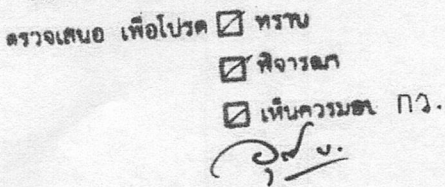 ตรวจเสนอ เพื่อโปรด ☑ ทราบ
☑ พิจารณา
☑ เห็นควรมอบ กว.